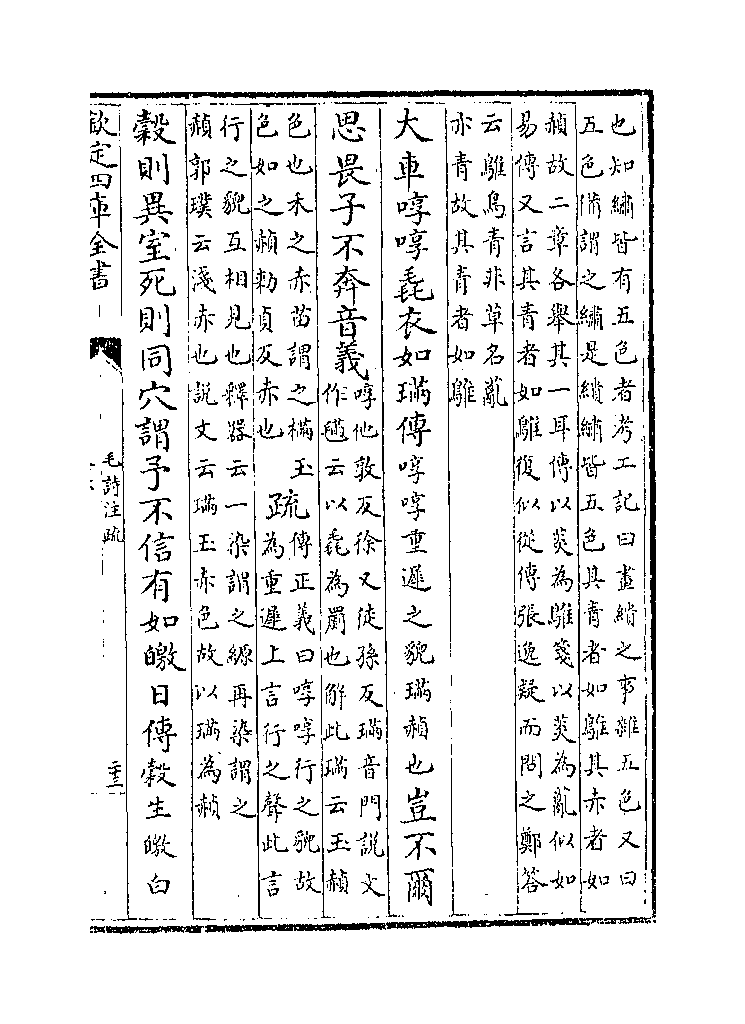 也知繡皆有五色者考工記曰畫繢之事雜五色又曰
五色備謂之繡是繢繡皆五色其青者如鵻其赤者如
赬故二章各舉其一耳傳以菼為鵻箋以菼為薍似如
易傳又言其青者如鵻復似從傳張逸疑而問之鄭答
云鵻鳥青非草名薍
亦青故其青者如鵻
大車啍啍毳衣如璊傳啍啍重遲之貌璊赬也豈不爾
思畏子不奔音義
啍他敦反徐又徒孫反璊音門說文
作𣯩云以毳為罽也解此璊云玉赬
色也禾之赤苗謂之樠玉
色如之赬勑貞反赤也
疏
傳正義曰啍啍行之貌故
為重遲上言行之聲此言
行之貌互相見也釋器云一染謂之縓再染謂之
赬郭璞云淺赤也說文云璊玉赤色故以璊為赬
榖則異室死則同穴謂予不信有如皦日傳榖生皦白
欽定四庫全書
毛詩注疏
二十三